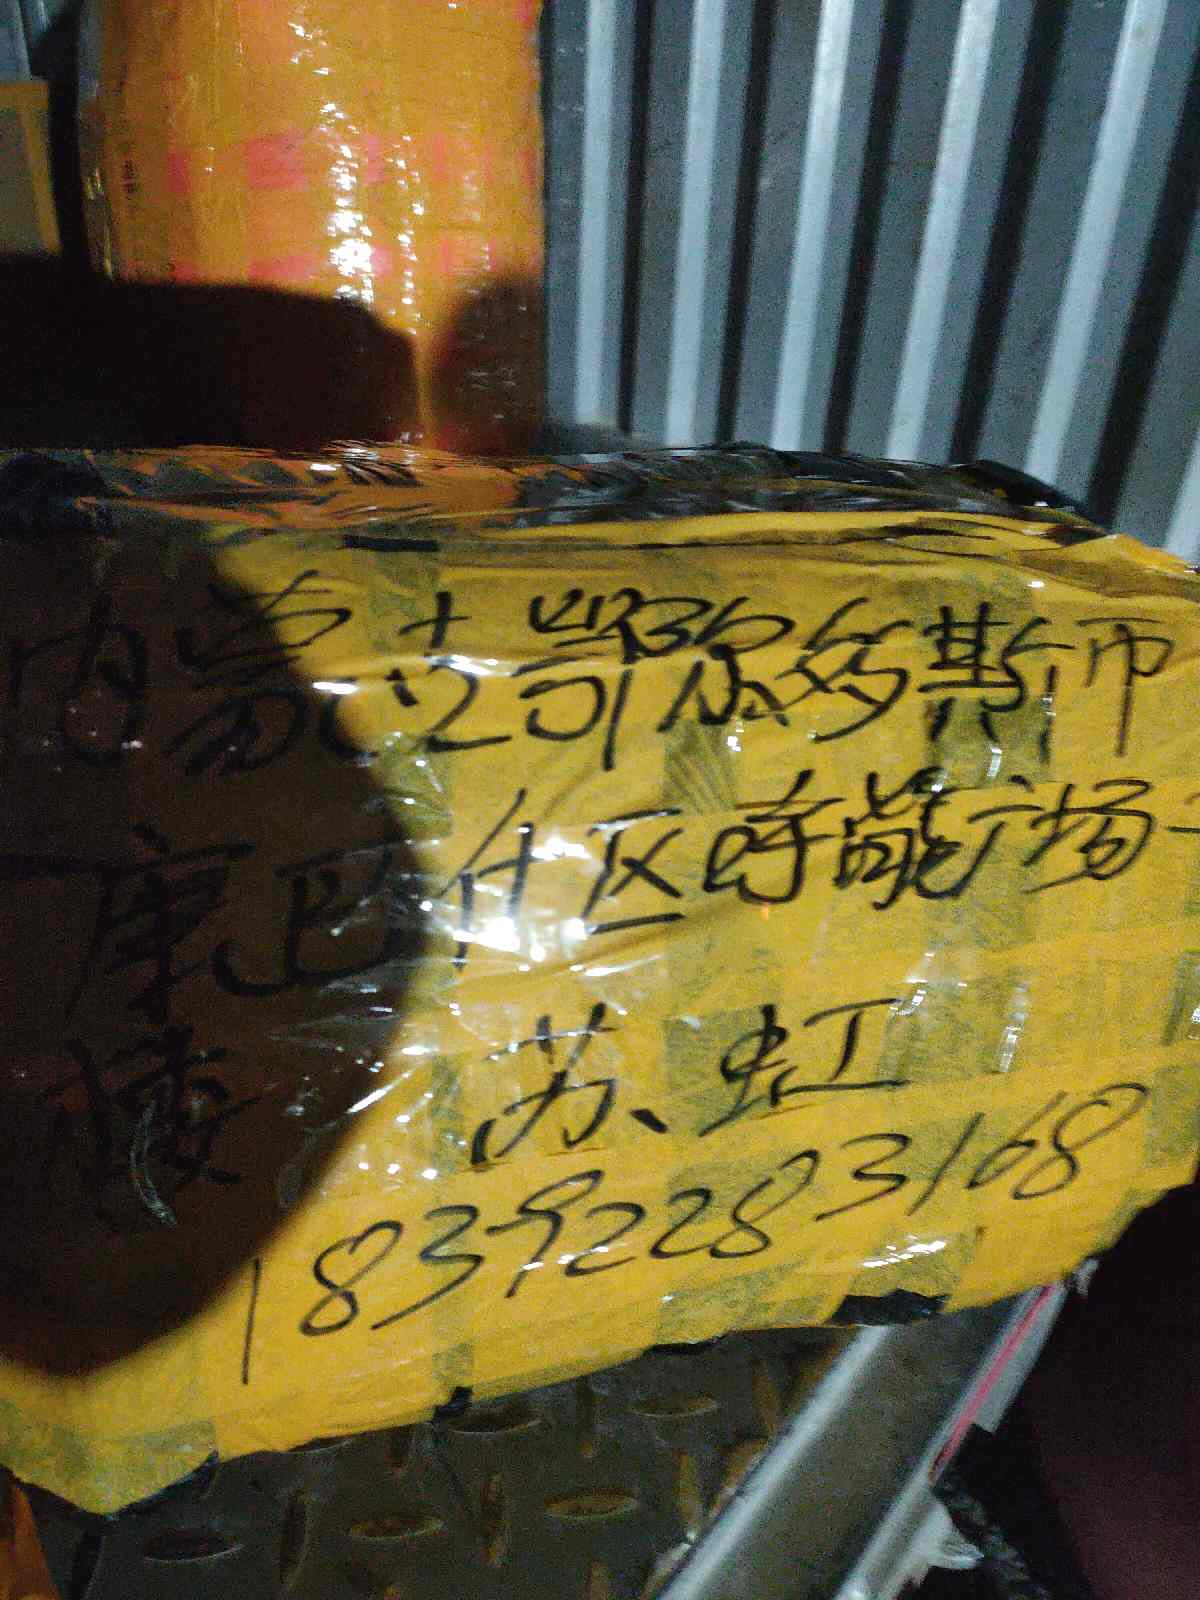 内蒙古鄂尔多斯市
康巴什区时能广场
楼 苏虹
18392283168